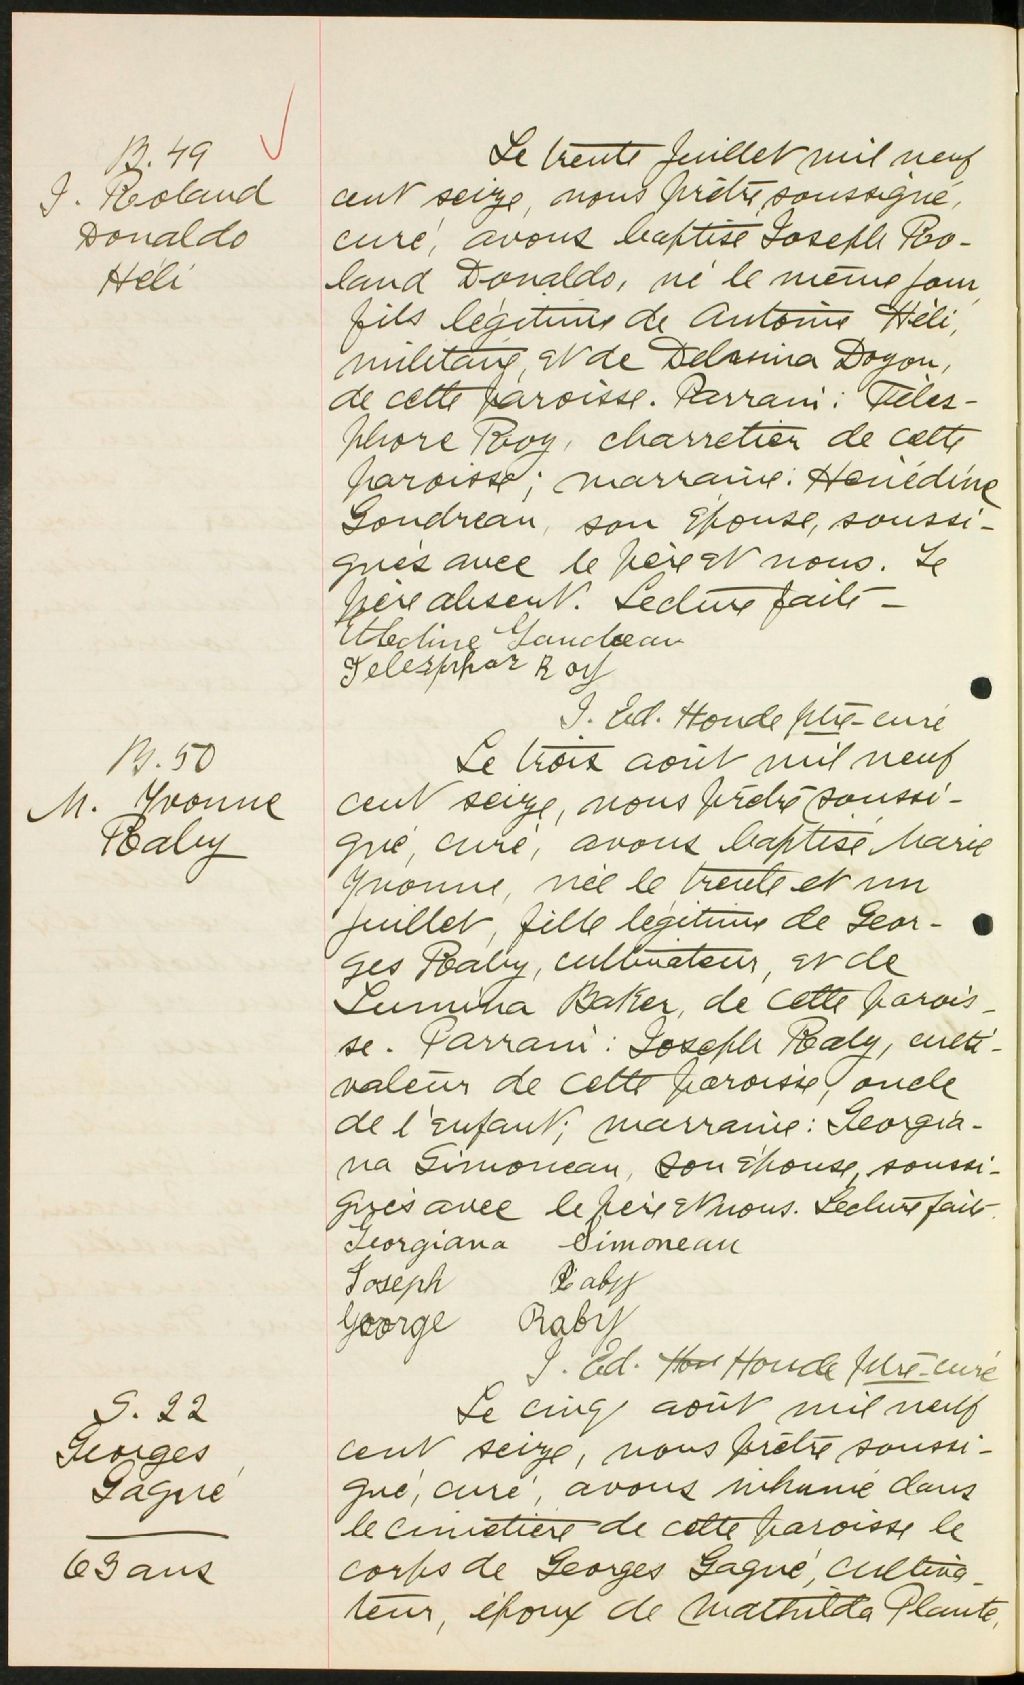 B. 49
J. Roland
Donaldo
Héli
Le trente juillet mil neuf
cent seize, nous prêtre soussigné,
curé, avons baptisé Joseph Ro-
land Donaldo, né le même jour,
fils légitime de Antoine Héli,
militaire, et de Delosina Doyon,
de cette paroisse. Parrain: Téles-
phore Roy, charretier de cette
paroisse; marraine:
Goudreau, son épouse, soussi-
gnés avec le père et nous. Le
père absent. Lecture faite -
Goudreau
Telesphor Roy
J. Ed. Houde ptre-curé
B. 50
M. Yvonne
Raby
Le trois août mil neuf
cent seize, nous prêtre soussi-
gné, curé, avons baptisé Marie
Yvonne, née le trente et un
juillet, fille légitime de Geor-
ges Raby, cultivateur, et de
Lumina Baker, de cette parois-
se. Parrain: Joseph Raby, culti-
vateur de cette paroisse, oncle
de l'enfant; marraine: Georgia-
na Simoneau, son épouse, soussi-
gnés avec le père et nous. Lecture faite.
Georgiana Simoneau
Joseph Raby
George Raby
J. Ed. Hou Houde ptre-curé
S. 22
Georges
Gagné
63 ans
Le cinq août mil neuf
cent seize, nous prêtre soussi-
gné, curé, avons inhumé dans
le cimetière de cette paroisse le
corps de Georges Gagné, cultiva-
teur, époux de Mathilda Plante,